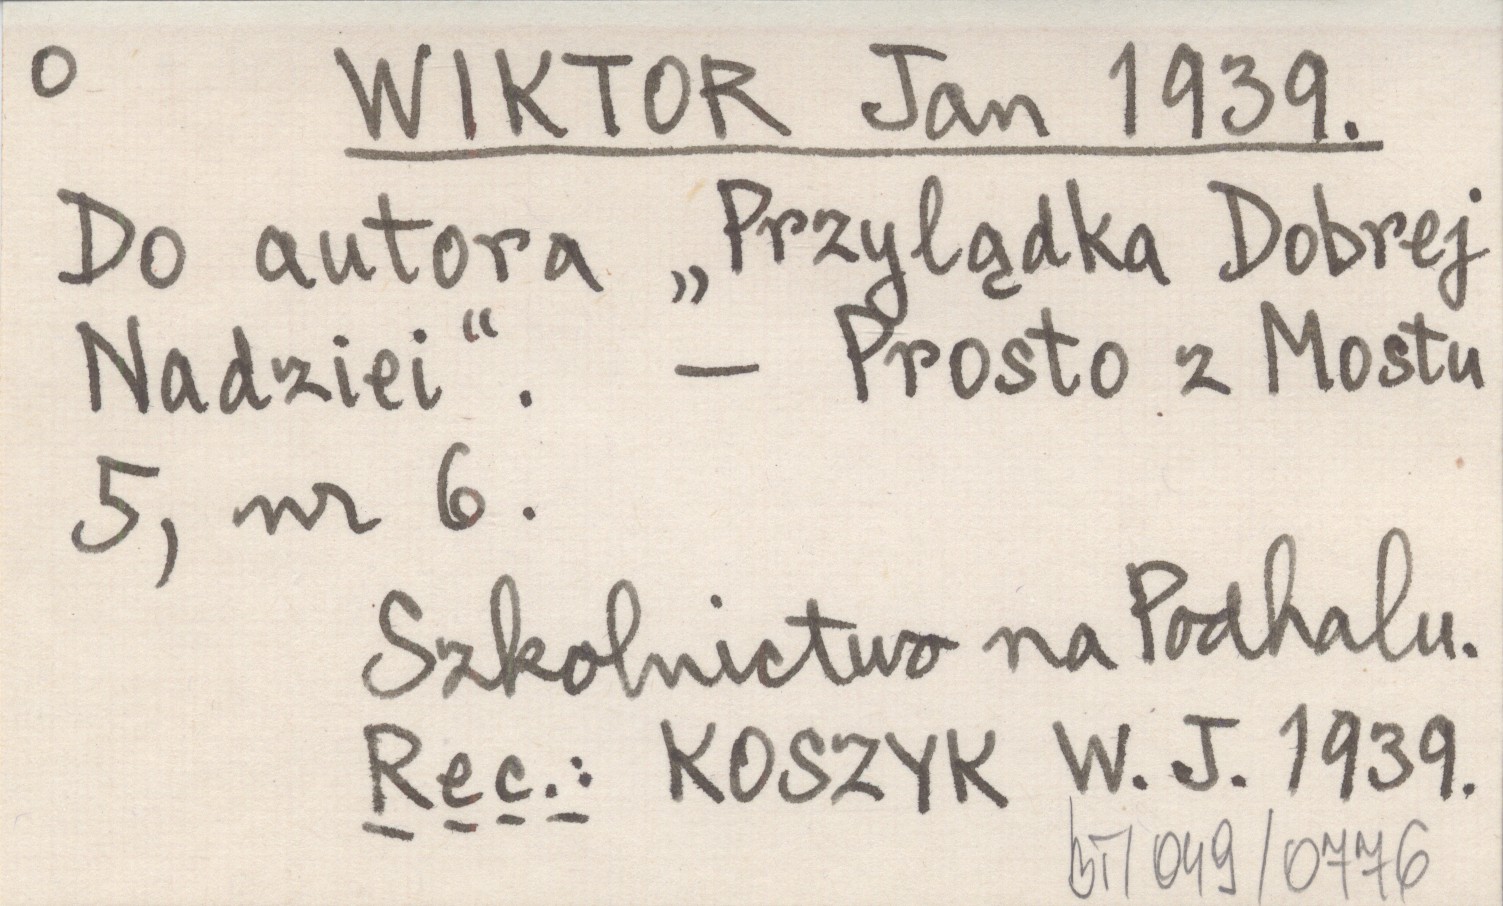 o WIKTOR Jan 1939.
Do autora „Przylądka Dobrej
Nadziei“. — Prosto z Mostu
5, nr 6.
Szkolnictwo na Podhalu.
Rec.: KOSZYK W. J. 1939.
049/0776